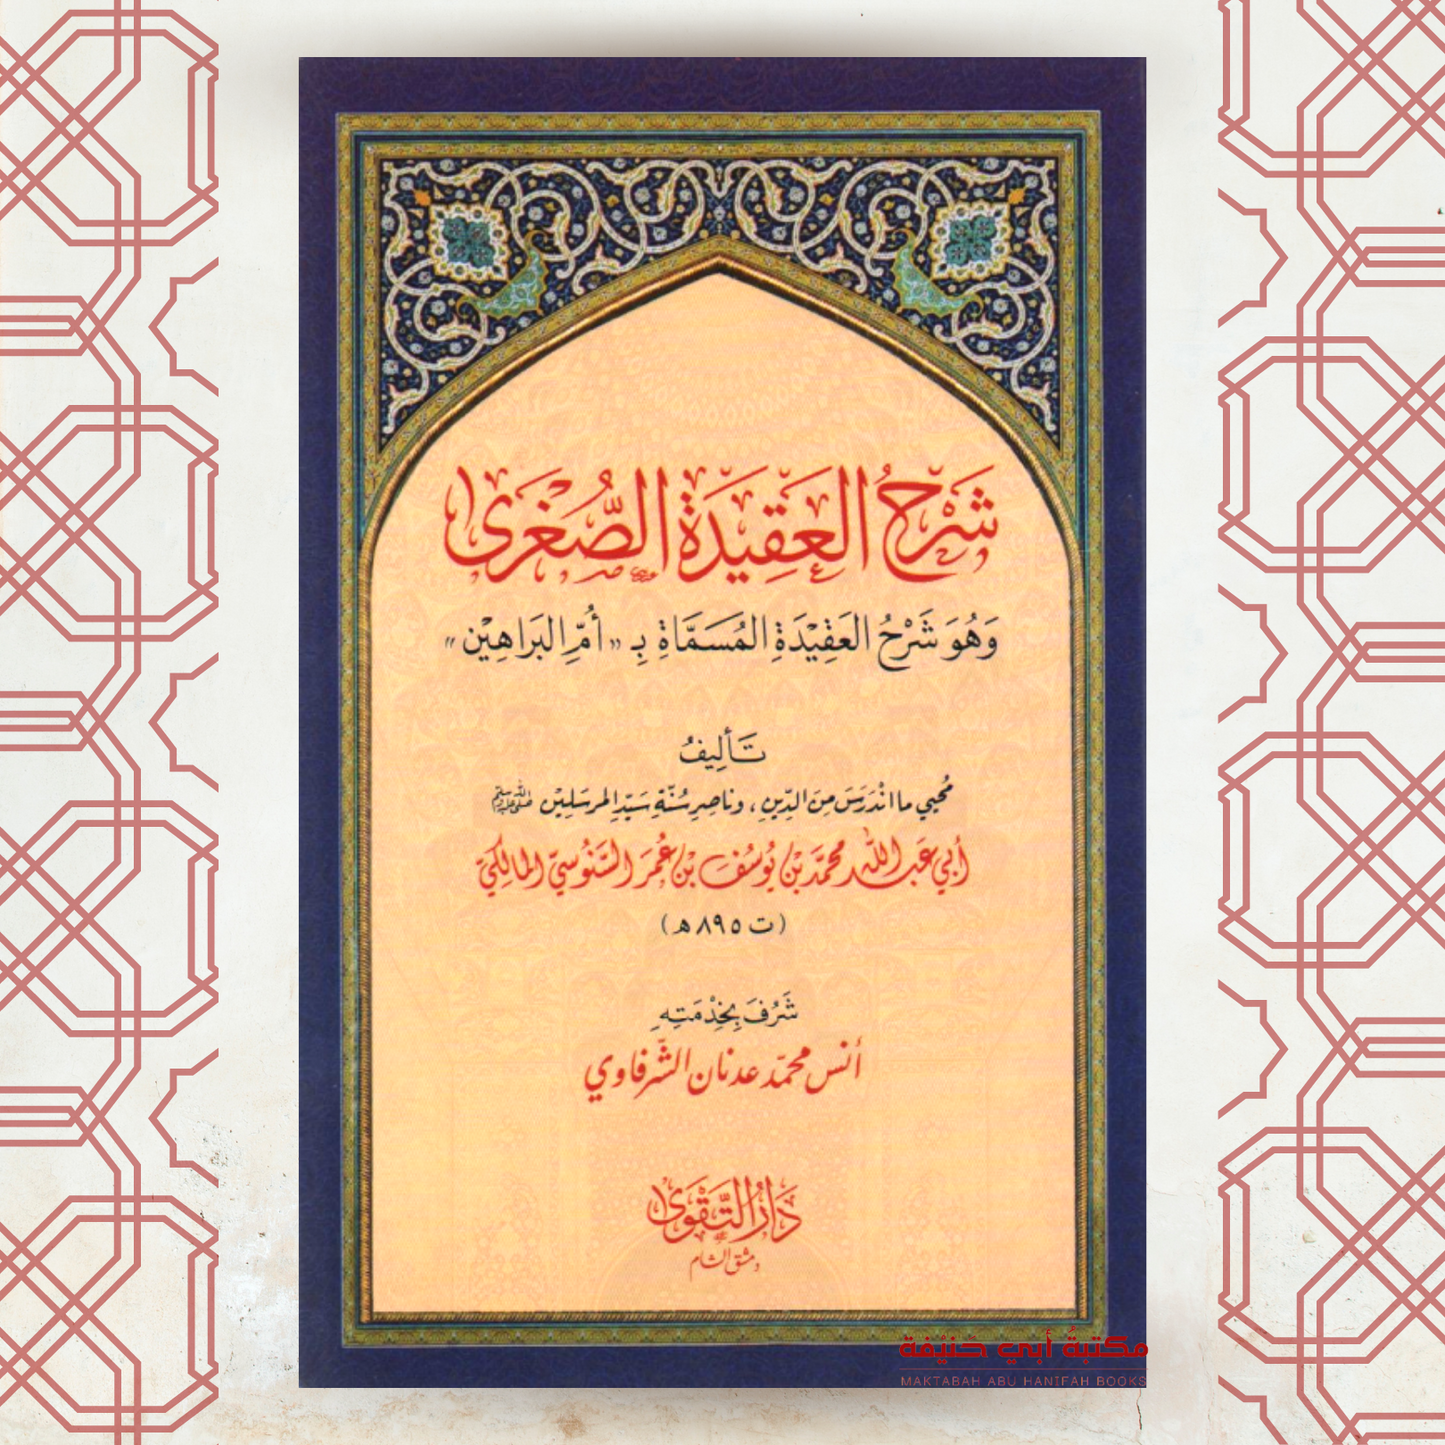 شَرْحُ العَقِيدَةِ الصُّغْرَى
وَهُوَ شَرْحُ العَقِيْدَةِ المُسَمَّاةِ بِـ «أُمِّ البَرَاهِيْن»
تَأْلِيفُ
مُحيي ما انْدَرَسَ مِنَ الدِّينِ ، وناصِرِ سُنّةِ سَيِّدِ المرسَلِيْن ﷺ
أبي عَبد اللّٰه محمَّد بْن يُوسُفَ بْن عُمَرَ السَّنُوسيّ المالِكيّ
(ت ٨٩٥ هـ)
شَرُفَ بِخِدْمَتِهِ
أنس محمّد عدنان الشّرفاوي
دَارُ التَّقْوَى
دمشق الشام
مكتبة أبي حنيفة
MAKTABAH ABU HANIFAH BOOKS